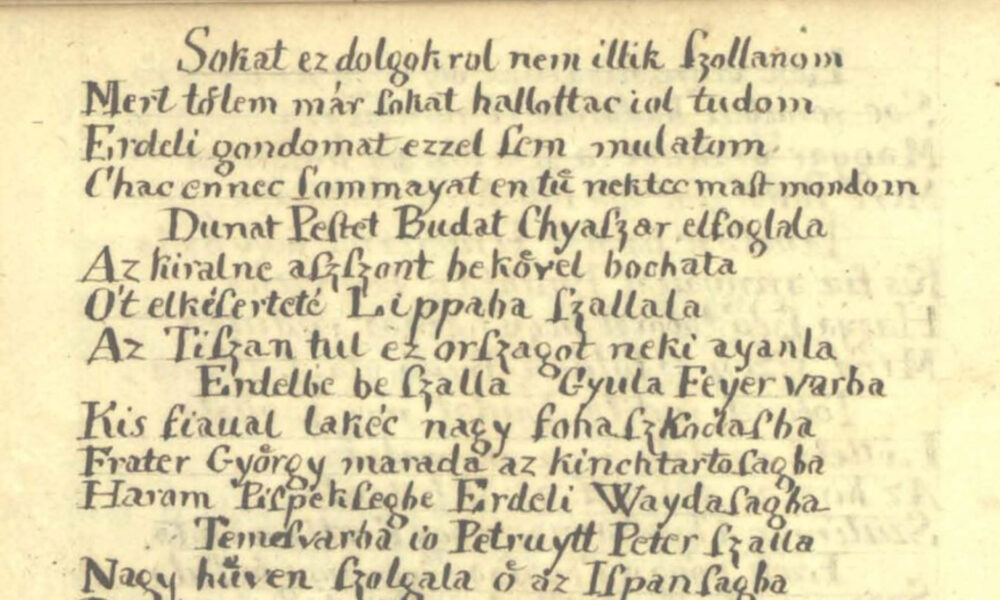 Sokat ez dolgokrol nem illik ſzollanom
Mert tőlem már ſokat hallottac iol tudom
Erdeli gondomat ezzel ſem mulatom
Chac ennec ſommayat en tű nektec maſt mondom
Dunat Peſtet Budat Chyaſzar elfoglala
Az kiralne aſzſzont bekőuel bochata
Ót elkéſerteté Lippaba ſzallala
Az Tiſzan tul ez orſzagot neki ayanla
Erdelbe be ſzalla Gyula Feyer varba
Kis fiaual lakéc nagy fohaſzkodaſba
Frater Győrgy marada az kinchtartoſagba
Harom Piſpekſegbe Erdeli Waydaſagba
Temeſvarba io Petruytt Peter ſzalla
Nagy hűven ſzolgala ő az Iſpanſagba